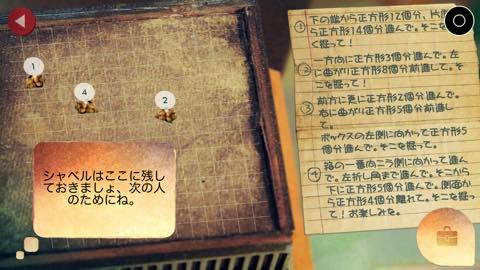 1
4
2
シャベルはここに残し
ておきましょ、次の人
のためにね。
① 下の端から正方形12個分、片側
ら正方形14個分進んで。そこな
く掘って！
② 一方向に正方形3個分進んで。左
に曲がり正方形8個分前進して。そ
こなを掘って！
③ 前方に更に正方形2個分進んで。
右に曲がり正方形5個分前進し
て。
ボックスの左側に向かって正方形5
個分進んで。そこなを掘って。
④ 箱の一番向こう側に向かって進ん
で。左折し角まで進んで。そこから
下に正方形5個分進んで。側面か
ら正方形4個分離れて。そこな掘っ
て！お楽しみな。